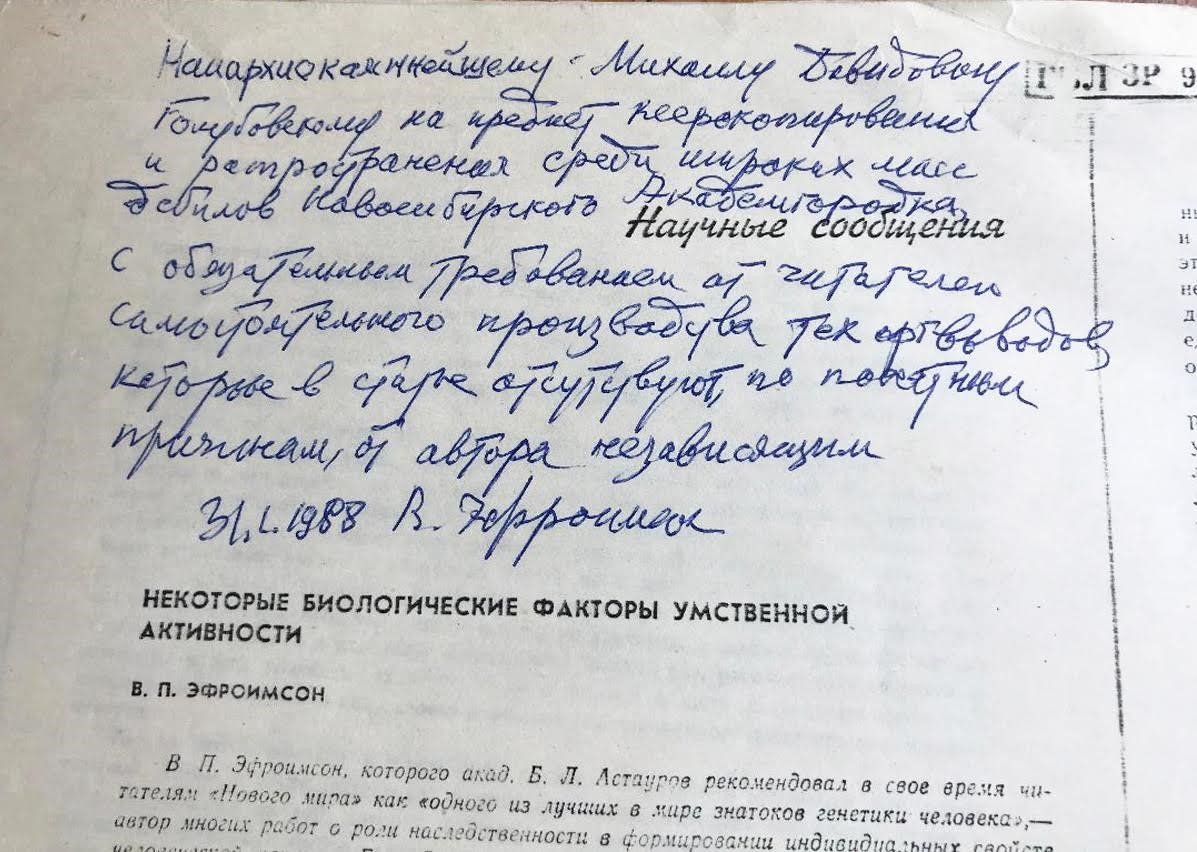 Наиархиокаяннейшему Михаилу Давидовичу
Голубовскому на предмет ксерокопирования
и распространения среди широких масс
дебилов Новосибирского Академгородка,
Научные сообщения
с обязательным требованием от читателей
самостоятельного производства тех выводов,
которые в статье отсутствуют, по понятным
причинам, от автора независящим
31.I.1988 В. Эфроимсон
НЕКОТОРЫЕ БИОЛОГИЧЕСКИЕ ФАКТОРЫ УМСТВЕННОЙ
АКТИВНОСТИ
В. П. ЭФРОИМСОН
В П. Эфроимсон, которого акад. Б. Л. Астауров рекомендовал в свое время чи-
тателям «Нового мира» как «одного из лучших в мире знатоков генетики человека»,—
автор многих работ о роли наследственности в формировании индивидуальных свойств